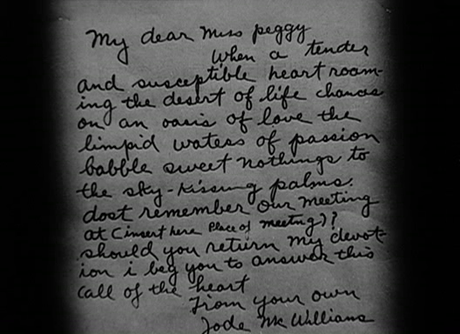 My dear Miss peggy
When a tender
and susceptible heart roam-
ing the desert of life chances
on an oasis of love the
limpid waters of passion
babble sweet nothings to
the sky-kissing palms.
dost remember our meeting
at (insert here Place of meeting)?
should you return my devot-
ion i beg you to answer this
call of the heart
From your own
Jode McWilliams